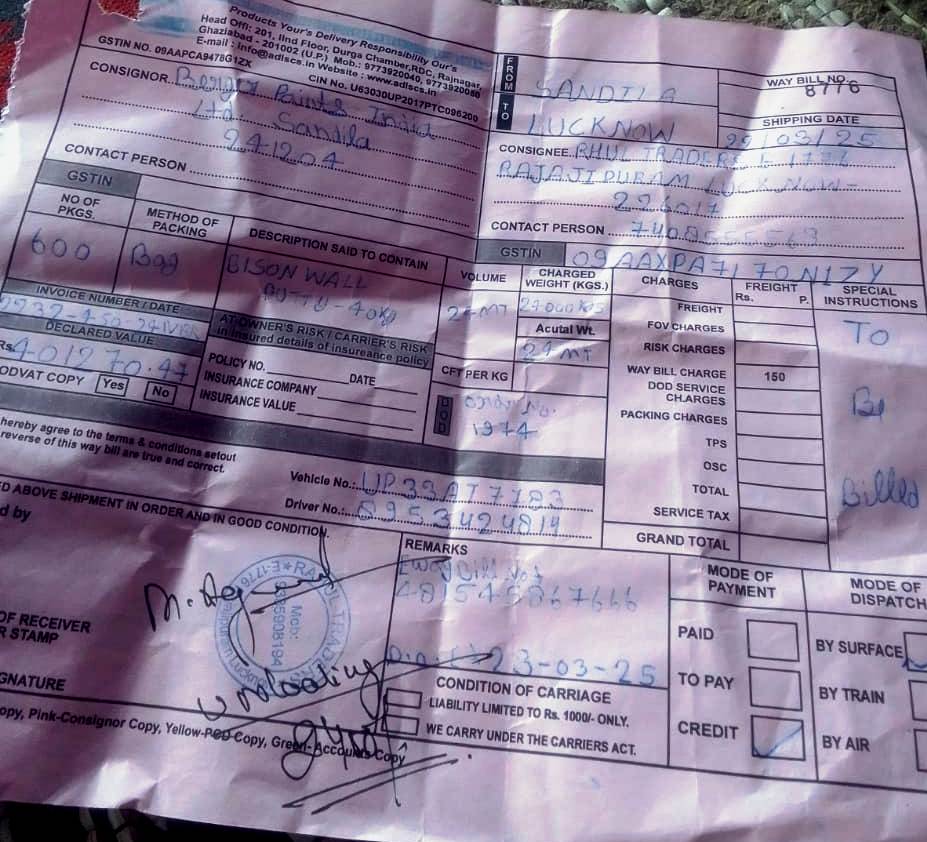 Products Your's Delivery Responsibility Our's
Head Offi: 201, IInd Floor, Durga Chamber,RDC, Rajnagar,
Ghaziabad - 201002 (U.P.) Mob.: 9773920040, 9773920080
E-mail : info@adlscs.in Website : www.adlscs.in
GSTIN NO. 09AAPCA9478G1ZX
CIN No. U63030UP2017PTC096200
CONSIGNOR. Berger Paints India
Ltd. Sandila
241204
CONTACT PERSON
GSTIN
FROM SANDILA
TO LUCKNOW
WAY BILL NO.
8776
SHIPPING DATE
22/03/25
CONSIGNEE. RHUL TRADERS E 1776
RAJAJIPURAM LUCKNOW-
226017
CONTACT PERSON 7408555563
GSTIN 09AAXPA7170N1ZY
NO OF PKGS.
METHOD OF PACKING
DESCRIPTION SAID TO CONTAIN
VOLUME
CHARGED WEIGHT (KGS.)
CHARGES
FREIGHT
Rs. P.
SPECIAL INSTRUCTIONS
600
Bag
BISON WALL
PUTTY-40Kg
24MT
24000KGS
Acutal Wt.
24 MT
To
Be
Billed
INVOICE NUMBER / DATE
DECLARED VALUE
Rs. 401270.47
ODVAT COPY Yes No
AT-OWNER'S RISK / CARRIER'S RISK
in insured details of insureance policy
POLICY NO. DATE
INSURANCE COMPANY
INSURANCE VALUE
CFT PER KG
Order No.
1974
FREIGHT
FOV CHARGES
RISK CHARGES
WAY BILL CHARGE 150
DOD SERVICE CHARGES
PACKING CHARGES
TPS
OSC
TOTAL
SERVICE TAX
GRAND TOTAL
hereby agree to the terms & conditions setout
reverse of this way bill are true and correct.
Vehicle No.: UP33AT7183
Driver No.: 8953424819
ED ABOVE SHIPMENT IN ORDER AND IN GOOD CONDITION.
d by
OF RECEIVER
R STAMP
GNATURE
E-1776
Mob:
REMARKS
Eway Bill No.
481545867666
23-03-25
unloading
CONDITION OF CARRIAGE
LIABILITY LIMITED TO Rs. 1000/- ONLY.
WE CARRY UNDER THE CARRIERS ACT.
MODE OF PAYMENT
PAID
TO PAY
CREDIT
MODE OF DISPATCH
BY SURFACE
BY TRAIN
BY AIR
opy, Pink-Consignor Copy, Yellow-POD Copy, Green-Accounts Copy